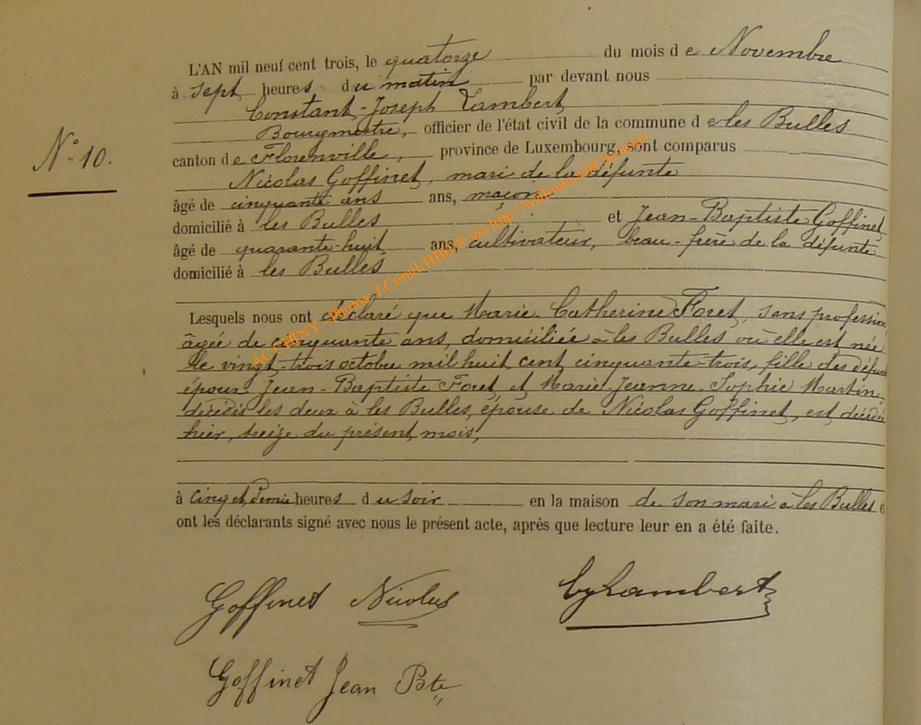 L'AN mil neuf cent trois, le quatorze du mois d e Novembre
à sept heures du matin par devant nous
Constant-Joseph Lambert,
Bourgmestre, officier de l'état civil de la commune d e les Bulles
N° 10.
canton de Florenville, province de Luxembourg, sont comparus
Nicolas Goffinet, mari de la défunte
âgé de cinquante ans ans, maçon
domicilié à les Bulles et Jean-Baptiste Goffinet,
âgé de quarante-huit ans, cultivateur, beau-frère de la défunte
domicilié à les Bulles
Lesquels nous ont déclaré que Marie Catherine Foret, sans profession
âgée de cinquante ans, domiciliée à les Bulles où elle est née
le vingt-trois octobre mil huit cent cinquante-trois, fille des défunts
époux Jean-Baptiste Foret et Marie Jeanne Sophie Martin,
décédés les deux à les Bulles, épouse de Nicolas Goffinet, est décédée
hier, treize du présent mois,
à cinq et demie heures du soir en la maison de son mari à les Bulles et
ont les déclarants signé avec nous le présent acte, après que lecture leur en a été faite.
Goffinet Nicolas
Lambert
Goffinet Jean Bte